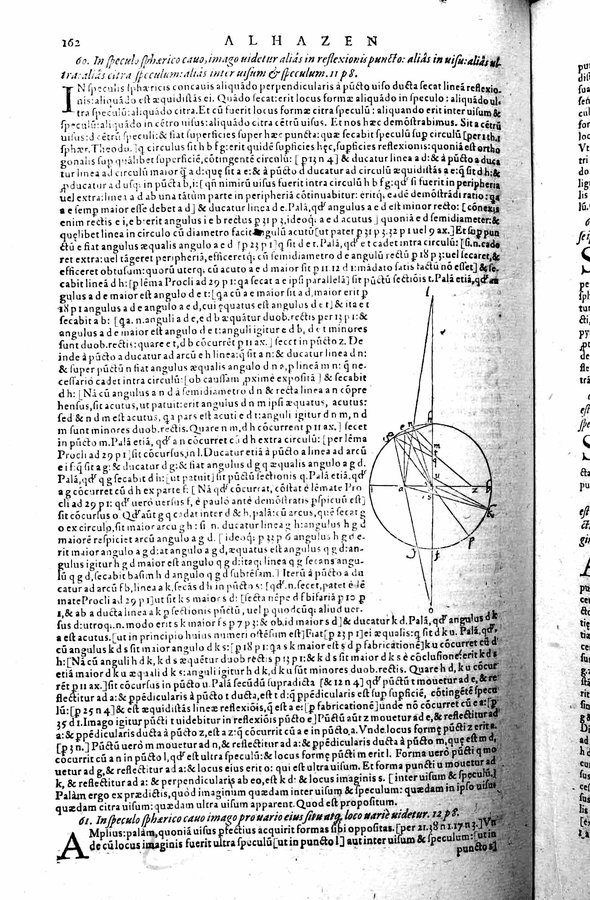 162 ALHAZEN
60. In speculo sphærico cauo, imago uidetur aliâs in reflexionis puncto: aliâs in uisu: aliâs ul
tra: aliâs citra speculum: aliâs inter uisum & speculum. 11 p 8.
IN speculis sphæricis concauis aliquãdo perpendicularis à pũcto uiso ducta secat lineã reflexio-
nis: aliquãdo est æquidistãs ei. Quãdo secat: erit locus formæ aliquãdo in speculo: aliquãdo ul
tra speculũ: aliquãdo citra. Et cũ fuerit locus formæ citra speculũ: aliquando erit inter uisum &
speculũ: aliquãdo in cẽtro uisus: aliquãdo citra cẽtrũ uisus. Et nos hæc demõstrabimus. Sit a cẽtrũ
uisus: d cẽtrũ speculi: & fiat superficies super hæc puncta: quæ secabit speculũ sup circulũ [per 1 th. 1
sphær. Theodo.] q circulus sit h b f g: erit quidẽ supficies hęc, supficies reflexionis: quoniã est ortho
gonalis sup quãlibet superficiẽ, cõtingentẽ circulũ: [p 13 n 4] & ducatur linea a d: & à pũcto a duca
tur linea ad circulũ maior ꝗ̃ a d: quę sit a e: & à pũcto d ducatur ad circulũ æquidistãs a e: q̃ sit d h: &
ꝓducatur a d usq; in pũcta b, i: [qñ nimirũ uisus fuerit intra circulũ h b f g: qd' si fuerit in peripheria
uel extra: linea a d ab una tãtùm parte in peripheria cõtinuabitur: eritq̃; eadẽ demõstrãdi ratio: qa
a e semp maior esse debet a d] & ducatur d e. Palã, qd' angulus a e d est minor recto: [cõnexis
enim rectis e i, e b: erit angulus i e b rectus p 31 p 3, ideoq́; a e d acutus] quoniã e d semidiameter: &
quęlibet linea in circulo cũ diametro facit angulũ acutũ [ut patet p 31 p 3. 32 p 1 uel 9 ax.] Et sup pun
ctũ e fiat angulus æqualis angulo a e d [p 23 p 1] q sit d e t. Palã, qd' e t cadet intra circulũ: [si. n. cade
ret extra: uel tãgeret peripheriã, efficeretq́; cũ semidiametro d e angulũ rectũ p 18 p 3: uel secaret, &
efficeret obtusum: quorũ uterq; cũ acuto a e d maior sit p 11. 12 d 1: mãdato satis factũ nõ esset] & se-
cabit lineã d h: [p lẽma Procli ad 29 p 1: qa secat a e ipsi parallelã] sit pũctũ sectionis t. Palã etiã, qd' an
gulus a d e maior est angulo d e t: [qa cũ a e maior sit a d, maior erit p
18 p 1 angulus a d e angulo a e d, cui ęquatus est angulus d e t] & ita e t
secabit a b: [qa. n. anguli a d e, e d b æquãtur duob. rectis per 13 p 1: &
angulus a d e maior est angulo d e t: anguli igitur e d b, d e t minores
sunt duob. rectis: quare e t, d b cõcurrẽt p 11 ax.] secet in pũcto z. De
inde à pũcto a ducatur ad arcũ e h linea: q̃ sit a n: & ducatur linea d n:
& super pũctũ n fiat angulus æqualis angulo d n a, p lineã m n: q̃ ne-
cessariò cadet intra circulũ: [ob caussam ꝓximè expositã] & secabit
d h: [Nã cũ angulus a n d à semidiametro d n & recta linea a n cõpre
hensus, sit acutus, ut patuit: erit angulus d n m ipsi æquatus, acutus,
sed & n d m est acutus, qa pars est acuti e d t: anguli igitur d n m, n d
m sunt minores duob. rectis. Quare n m, d h cõcurrent p 11 ax.] secet
in pũcto m. Palã etiã, qd' a n cõcurret cũ d h extra circulũ: [per lẽma
Procli ad 29 p 1] sit cõcursus, in l. Ducatur etiã à pũcto a linea ad arcũ
e i f: q̃ sit a g: & ducatur d g: & fiat angulus d g q æqualis angulo a g d.
Palã, qd' q g secabit d h: [ut patuit] sit pũctũ sectionis q. Palã etiã, qd'
a g cõcurret cũ d h ex parte f: [Nã qd' cõcurrat, cõstat è lẽmate Pro
cli ad 29 p 1: qd' uerò uersus f, è paulò antè demõstratis pspicuũ est]
sit cõcursus o. Qd' aũt g q cadat inter d & h, palã: cũ arcus, quẽ secat g
o ex circulo, sit maior arcu g h: si n. ducatur linea g h: angulus h g d
maiorẽ respiciet arcũ angulo a g d. [ideoq́; p 33 p 6 angulus h g d e-
rit maior angulo a g d: at angulo a g d, æquatus est angulus q g d: an-
gulus igitur h g d maior est angulo q g d: itaq; linea q g secans angu-
lũ q g d, secabit basim h d angulo q g d subtẽsam.] Iterũ à pũcto a du
catur ad arcũ f b, linea a k, secãs d h in pũcto s: [qd'. n. secet, patet è lẽ
mate Procli ad 29 p 1] ut sit k s maior s d: [secta nẽpe d f bifariã p 10 p
1, & ab a ducta linea a k p sectionis pũctũ, uel p quodcũq; aliud uer-
sus d: utroq;. n. modo erit s k maior f s p 7 p 3: & ob. id maior s d] & ducatur k d. Palã, qd' angulus d k
a est acutus. [ut in principio huius numeri ostẽsum est] Fiat [p 23 p 1] ei æqualis: q̃ sit d k u. Palã, qd'
cũ angulus k d s sit maior angulo d k s: [p 18 p 1: qa s k maior est s d p fabricationẽ] k u cõcurret cũ d
h: [Nã cũ anguli h d k, k d s æquẽtur duob. rectis p 13 p 1: & k d s sit maior d k s è cõclusione: erit k d s
etiã maior d k u æquali d k s: anguli igitur h d k, d k u sũt minores duob. rectis. Quare h d, k u cõcur
rẽt p 11 ax.] sit cõcursus in pũcto u. Palã secũdũ supradicta [6 & 12 n 4] qd' pũctũ t mouetur ad e, & re-
flectitur ad a: & ppẽdicularis à pũcto t ducta, est t d: q̃ ppẽdicularis est sup supficiẽ, cõtingẽtẽ specu
lũ: [p 25 n 4] & est æquidistãs lineæ reflexiõis, q̃ est a e: [p fabricationẽ] unde nõ cõcurret cũ e a: [p
35 d 1. Imago igitur pũcti t uidebitur in reflexiõis pũcto e] Pũctũ aũt z mouetur ad e, & reflectitur ad
a: & ppẽdicularis ducta à pũcto z, est a z: q̃ cõcurrit cũ a e in pũcto, a. Vnde. locus formę pũcti z erit a.
[p 3 n.] Pũctũ uerò m mouetur ad n, & reflectitur ad a: & ppẽdicularis ducta à pũcto m, quę est m d,
cõcurrit cũ a n in pũcto l, qd' est ultra speculũ: & locus formę pũcti m erit l. Forma uerò pũcti q mo
uetur ad g, & reflectitur ad a: & locus eius erit o: qui est ultra uisum. Et forma puncti u mouetur ad
k, & reflectitur ad a: & perpendicularis ab eo, est k d: & locus imaginis s. [inter uisum & speculũ.]
Palàm ergo ex prædictis, quòd imaginum quædam inter uisum & speculum: quædam in ipso uisu:
quædam citra uisum: quædam ultra uisum apparent. Quod est propositum.
61. In speculo sphærico cauo imago pro uario eius situ atq; loco uariè uidetur. 12 p 8.
AMplius: palàm, quoniã uisus pfectius acquirit formas sibi oppositas. [per 21. 38 n 1. 17 n 3.] Vn
de cũ locus imaginis fuerit ultra speculũ [ut in puncto l] aut inter uisum & speculum: [ut in
puncto s]